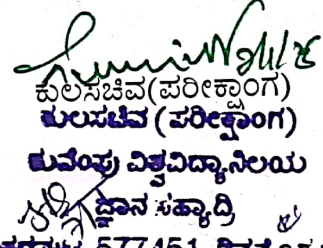 ಕುಲಸಚಿವ(ಪರೀಕ್ಷಾಂಗ)
ಕುಲಸಚಿವ (ಪರೀಕ್ಷಾಂಗ)
ಕುವೆಂಪು ವಿಶ್ವವಿದ್ಯಾನಿಲಯ
ಜ್ಞಾನ ಸಹ್ಯಾದ್ರಿ
577451